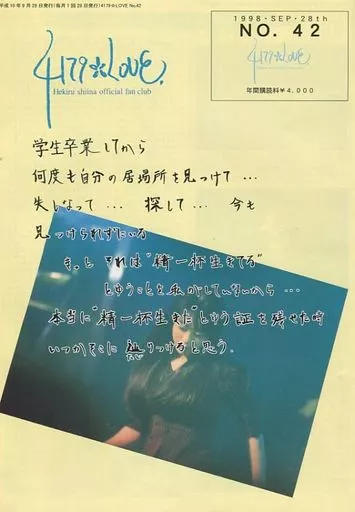 平成10年9月28日発行(毎月1回28日発行)4179☆LOVE No.42
1998・SEP・28th
NO. 42
4179☆LOVE
年間購読料¥4,000
4179☆LOVE.
Hekiru shiina official fan club
学生卒業してから
何度も自分の居場所を見つけて…
失しなって… 探して… 今も
見つけられずにいる
きっと それは“精一杯生きてる”
とゆうことを私がしていないから…
本当に“精一杯生きた”とゆう証を残せた時
いつかそこに辿りつけると思う。